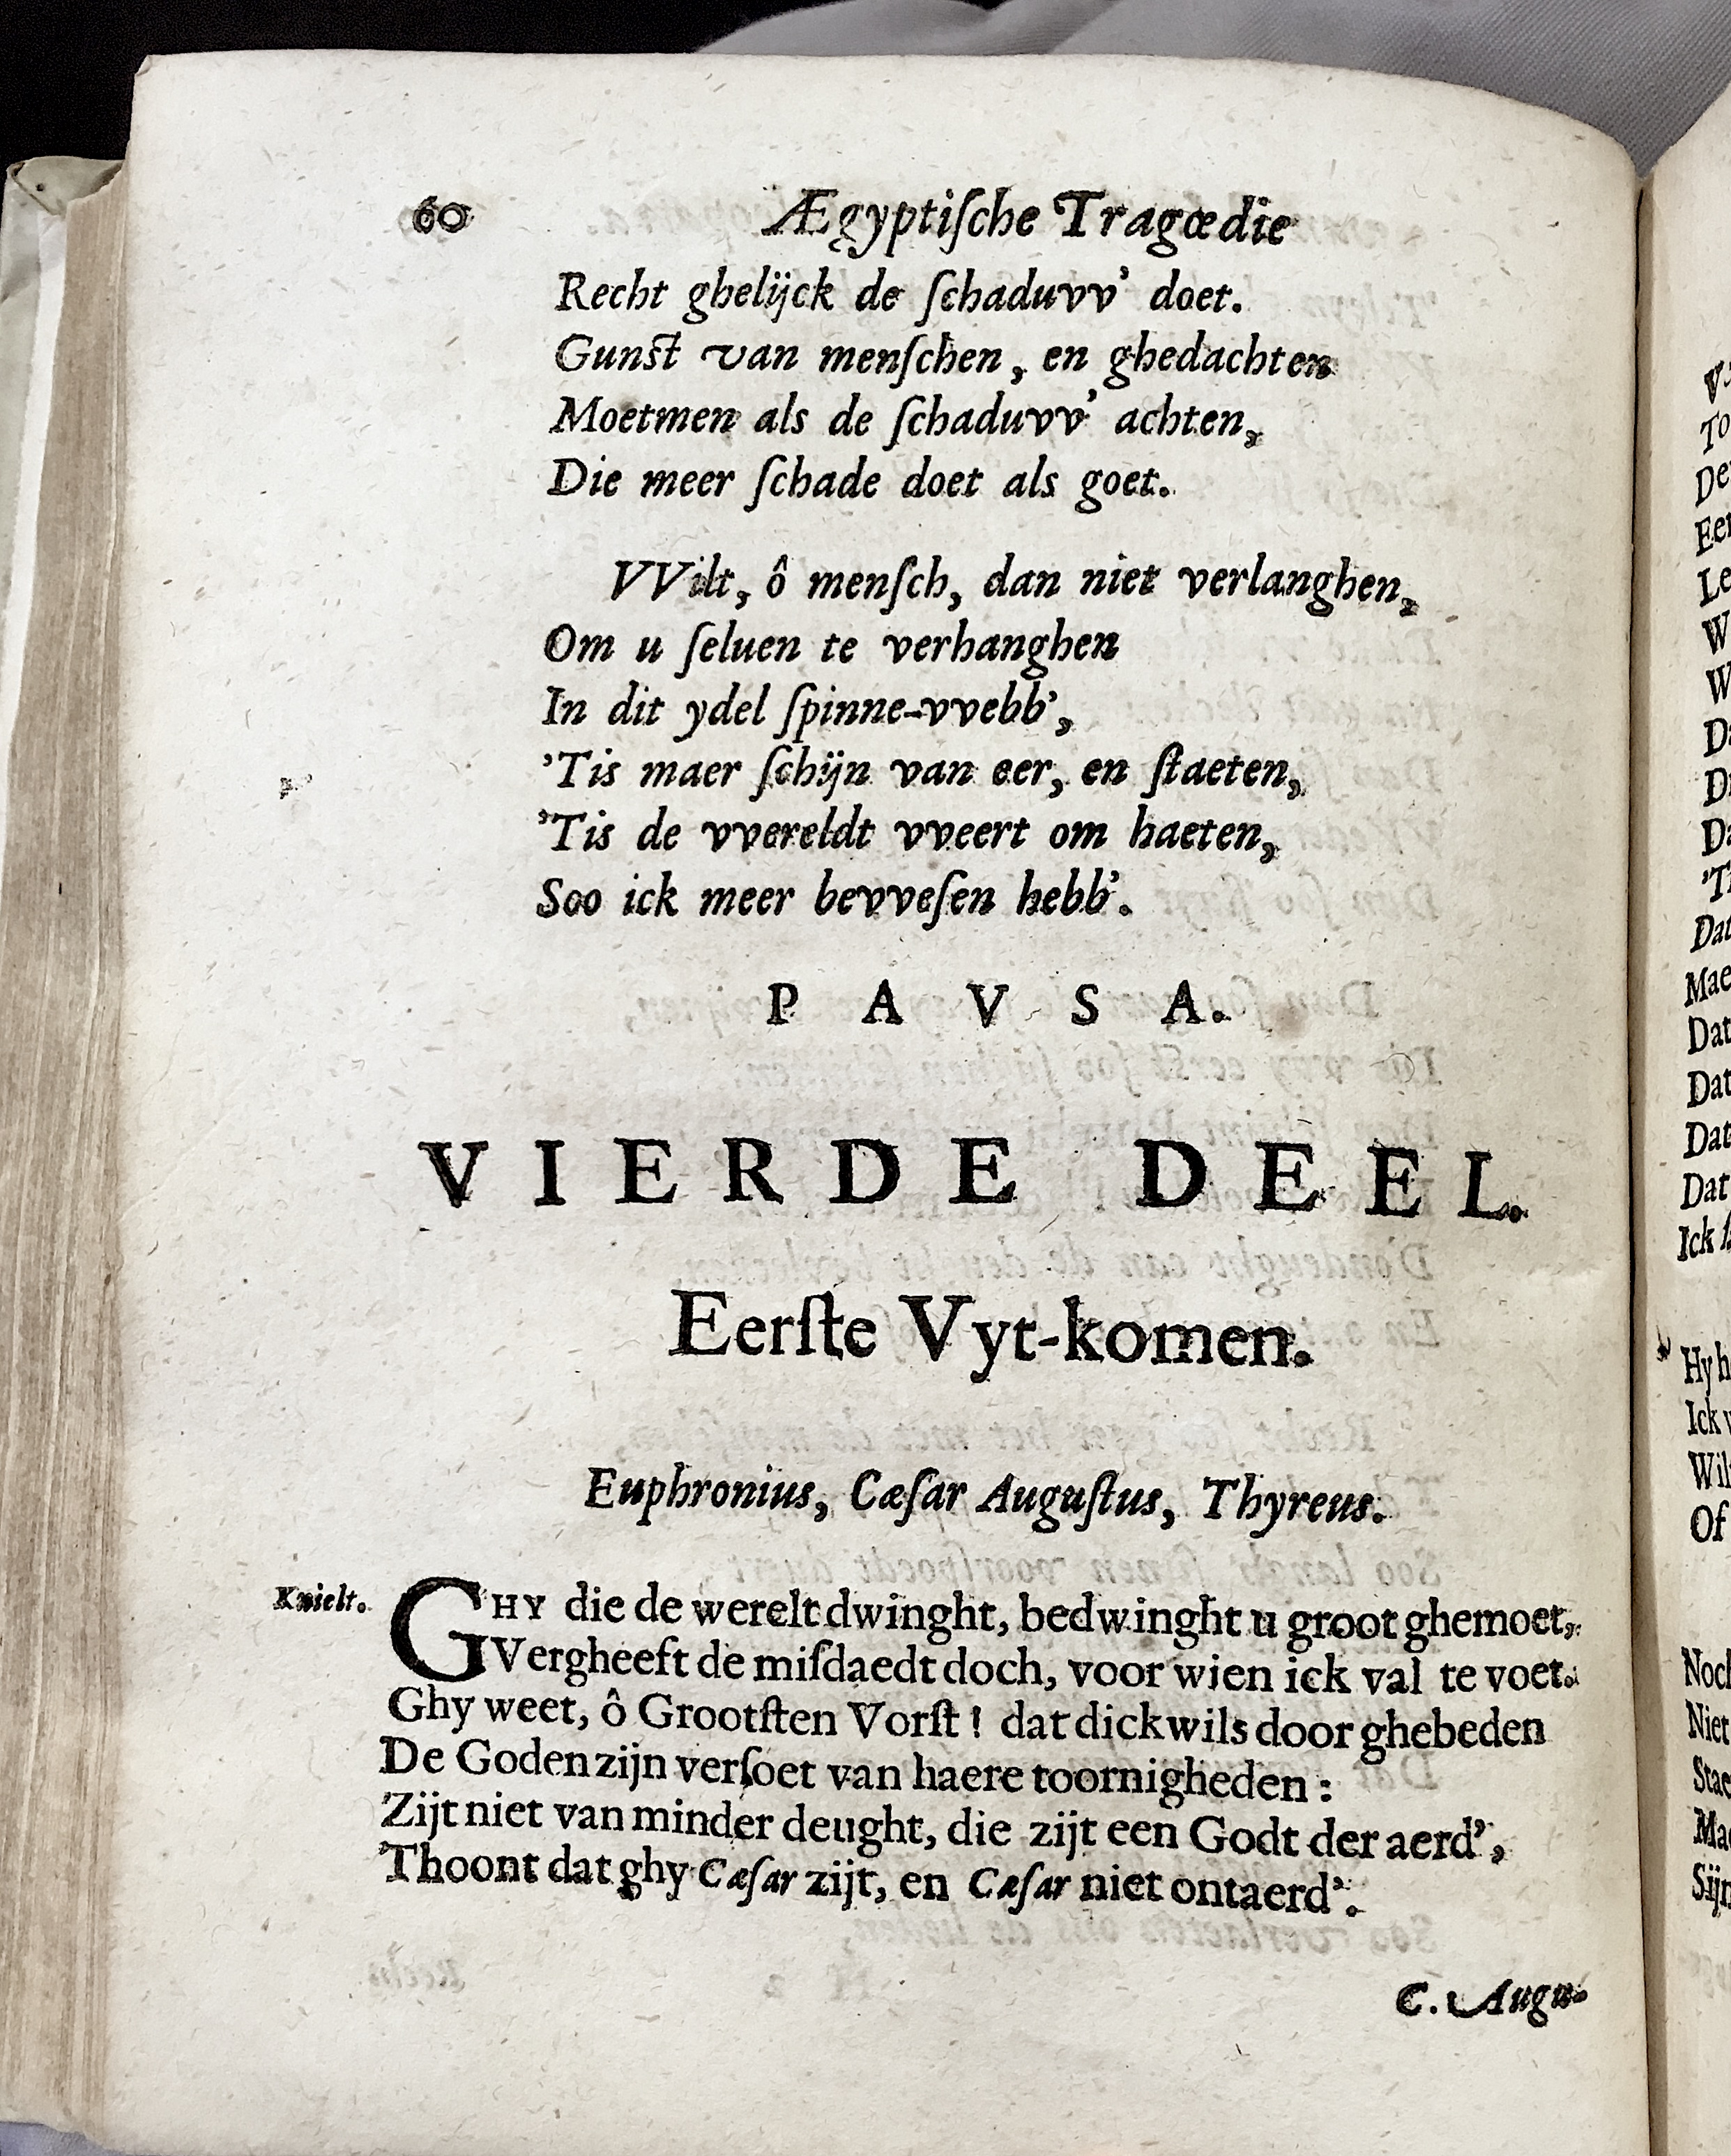 60 Ægyptiſche Tragœdie
Recht ghelijck de ſchaduvv' doet.
Gunst van menſchen, en ghedachten
Moetmen als de ſchaduvv' achten,
Die meer ſchade doet als goet.
VVilt, ô menſch, dan niet verlanghen,
Om u ſeluen te verhanghen
In dit ydel ſpinne-vvebb',
'Tis maer ſchijn van eer, en ſtaeten,
'Tis de vvereldt vveert om haeten,
Soo ick meer bevveſen hebb'.
P A V S A.
VIERDE DEEL.
Eerſte Vyt-komen.
Euphronius, Cæſar Auguſtus, Thyreus.
Knielt. GHY die de werelt dwinght, bedwinght u groot ghemoet,
Vergheeft de miſdaedt doch, voor wien ick val te voet.
Ghy weet, ô Grootſten Vorſt! dat dickwils door ghebeden
De Goden zijn verſoet van haere toornigheden:
Zijt niet van minder deught, die zijt een Godt der aerd',
Thoont dat ghy Cæſar zijt, en Cæſar niet ontaerd'.
C. Augu-
V
To
De
Eer
Le
W
W
Da
D
Da
'T
Dat
Mae
Dat
Dat
Dat
Dat
Ick
Hy h
Ick v
Wil
Of
Noch
Niet
Stae
Ma
Sijn